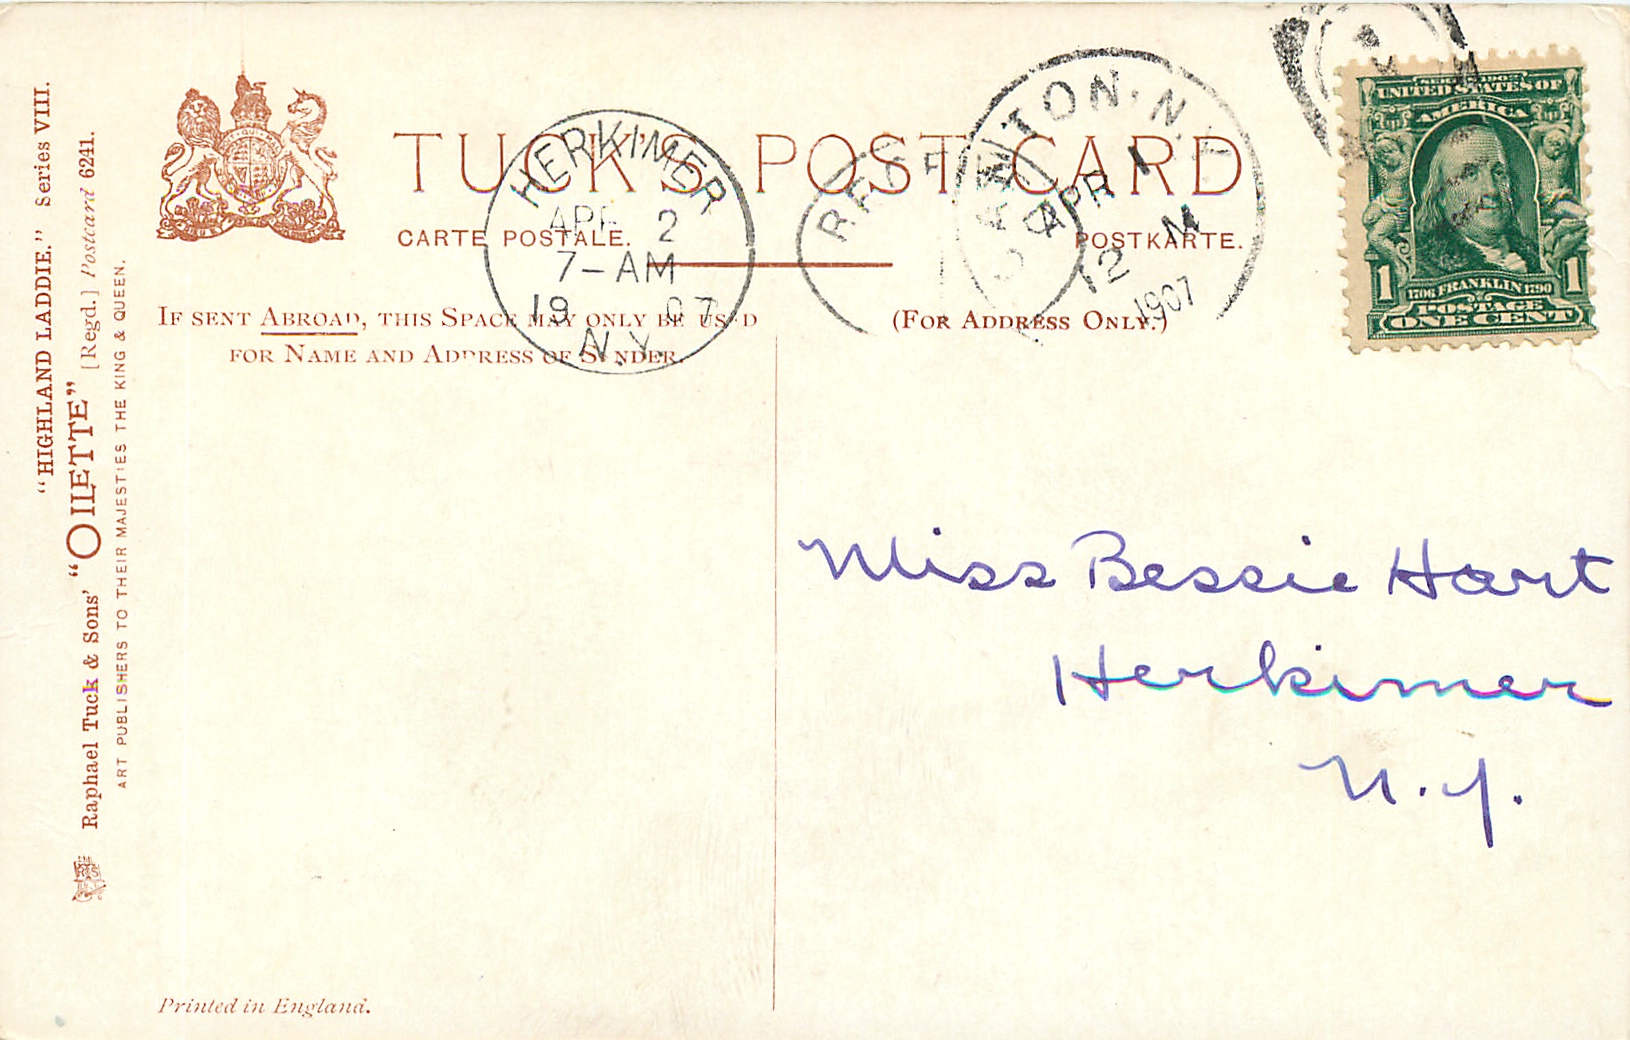 "HIGHLAND LADDIE." Series VIII.
Raphael Tuck & Sons' "OILETTE" [Regd.] Postcard 6241.
ART PUBLISHERS TO THEIR MAJESTIES THE KING & QUEEN.
TUCK'S POST CARD
CARTE POSTALE.
POSTKARTE.
IF SENT ABROAD, THIS SPACE MAY ONLY BE USED
FOR NAME AND ADDRESS OF SENDER.
(FOR ADDRESS ONLY.)
HERKIMER
APR 2
7-AM
1907
N.Y.
CANTON, N.Y.
APR 1
12 M
1907
UNITED STATES OF
AMERICA
1706 FRANKLIN 1790
POSTAGE
1 ONE CENT 1
Miss Bessie Hart
Herkimer
N.Y.
Printed in England.